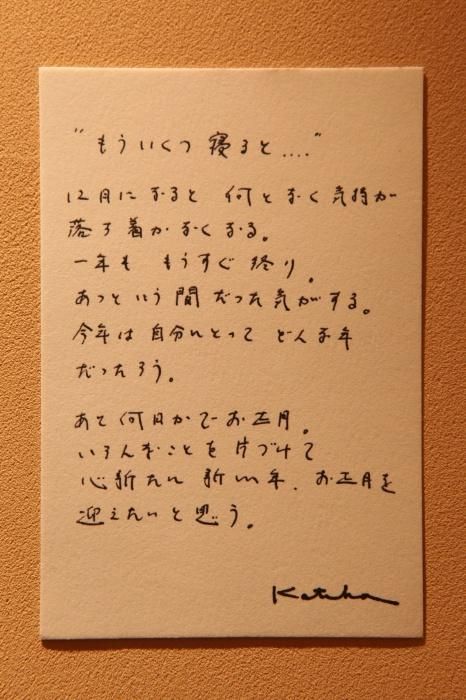 "もういくつ寝ると...."
12月になると 何となく気持が
落ち着かなくなる。
一年も もうすぐ終り。
あっという間だった気がする。
今年は自分にとって どんな年
だったろう。
あと何日かでお正月。
いろんなことを片づけて
心新たに 新しい年、お正月を
迎えたいと思う。